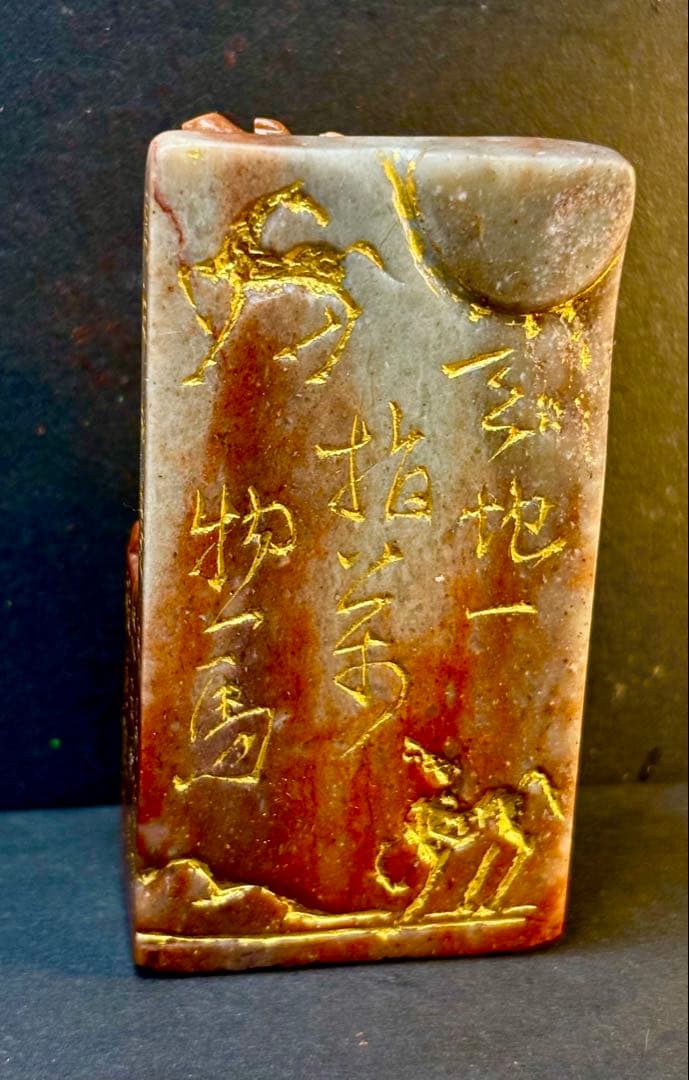 天地一
指萬
物一馬